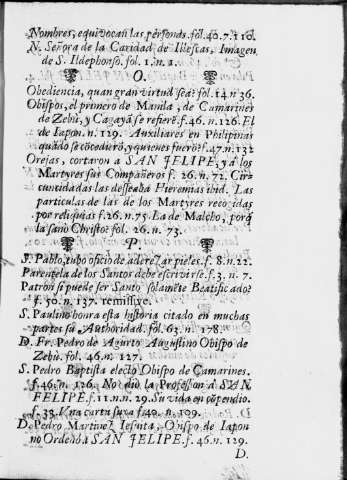 Nombres, equivocan las personas. fol. 40. 7. 110.
N. Señora de la Caridad de Illescas, Imagen
de S. Ildephonso. fol. 1. n. 2.
O.
Obediencia, quan gran virtud sea? fol. 14. n 36.
Obispos, el primero de Manila, de Camarines
de Zebù, y Cagayã se refierẽ. f. 46. n. 126. El
de Iapon. n. 129. Auxiliares en Philipinas
quãdo sẽ cõcedurõ, y quienes fuerõ? f. 47. n. 132
Orejas, cortaron a SAN FELIPE, y â los
Martyres sus Compañeros f. 26. n. 72. Cir-
cuncidadas las desseaba Hieremias ibid. Las
particulas de las de los Martyres recogidas
por reliquias f. 26. n. 75. La de Malcho, porq̃
la sanò Christo? fol. 26. n. 73.
P.
S. Pablo, tubo oficio de aderezar pieles. f. 8. n. 22.
Parentela de los Santos debe escrivirse. f. 3. n. 7.
Patron si puede ser Santo solamẽte Beatificado?
f. 50. n. 137. remissive.
S. Paulino honra esta historia citado en muchas
partes su Authoridad. fol. 63. n. 178.
D. Fr. Pedro de Agurto Augustino Obispo de
Zebù. fol. 46. n. 127.
S. Pedro Baptista electo Obispo de Camarines.
f. 46. n. 126. No dio la Profession à SAN
FELIPE. f. 11. n. n. 29. Su vida en cõpendio.
f. 33. Vna carta suya f. 40. n. 109.
D. Pedro Martinez Iesuita, Obispo de Iapon
no Ordenò à SAN FELIPE. f. 46. n. 129.
D.